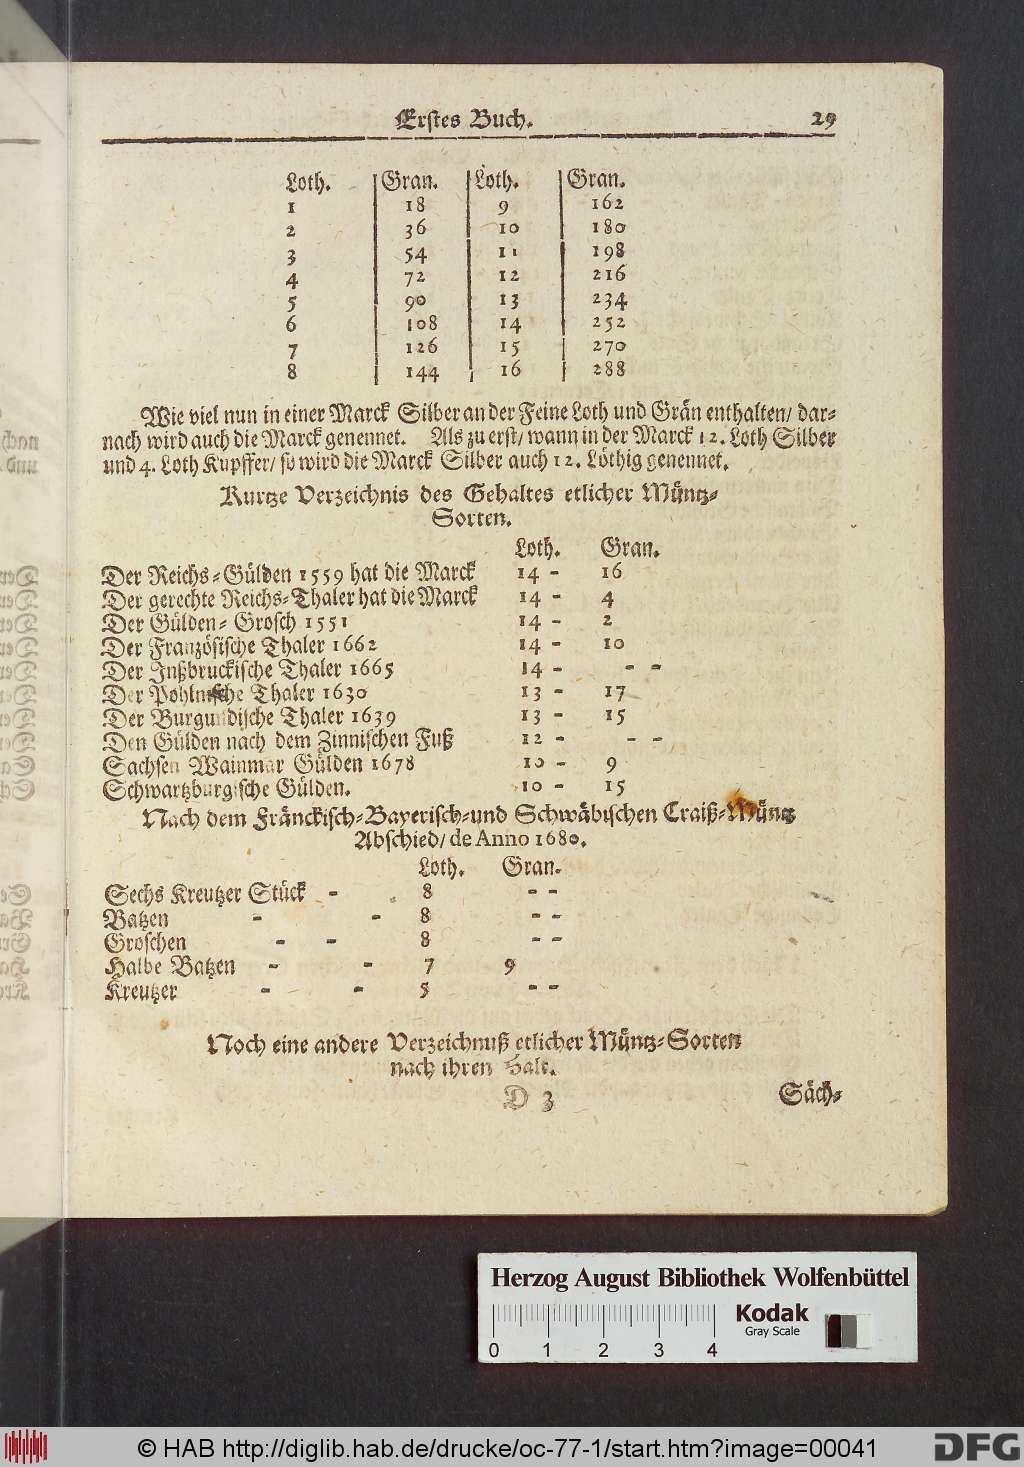 Erstes Buch. 29
Loth. Gran. Loth. Gran.
1 18 9 162
2 36 10 180
3 54 11 198
4 72 12 216
5 90 13 234
6 108 14 252
7 126 15 270
8 144 16 288
Wie viel nun in einer Marck Silber an der Feine Loth und Grän enthalten/ dar-
nach wird auch die Marck genennet. Als zu erst/ wann in der Marck 12. Loth Silber
und 4. Loth Kupffer/ so wird die Marck Silber auch 12. Löthig genennet.
Kurtze Verzeichnis des Gehaltes etlicher Müntz-
Sorten.
Loth. Gran.
Der Reichs-Gülden 1559 hat die Marck 14 - 16
Der gerechte Reichs-Thaler hat die Marck 14 - 4
Der Gülden-Grosch 1551 14 - 2
Der Französische Thaler 1662 14 - 10
Der Inßbruckische Thaler 1665 14 - - -
Der Pohlnische Thaler 1630 13 - 17
Der Burgundische Thaler 1639 13 - 15
Den Gülden nach dem Zinnischen Fuß 12 - - -
Sachsen Wainmar Gülden 1678 10 - 9
Schwartzburgische Gülden. 10 - 15
Nach dem Fränckisch-Bayerisch-und Schwäbischen Craiß-Müntz
Abschied/ de Anno 1680.
Loth. Gran.
Sechs Kreutzer Stück - 8 - -
Batzen - - 8 - -
Groschen - - 8 - -
Halbe Batzen - - 7 9
Kreutzer - - 5 - -
Noch eine andere Verzeichnuß etlicher Müntz-Sorten
nach ihren Halt.
D 3 Säch-
Herzog August Bibliothek Wolfenbüttel
Kodak
Gray Scale
0 1 2 3 4
© HAB http://diglib.hab.de/drucke/oc-77-1/start.htm?image=00041
DFG